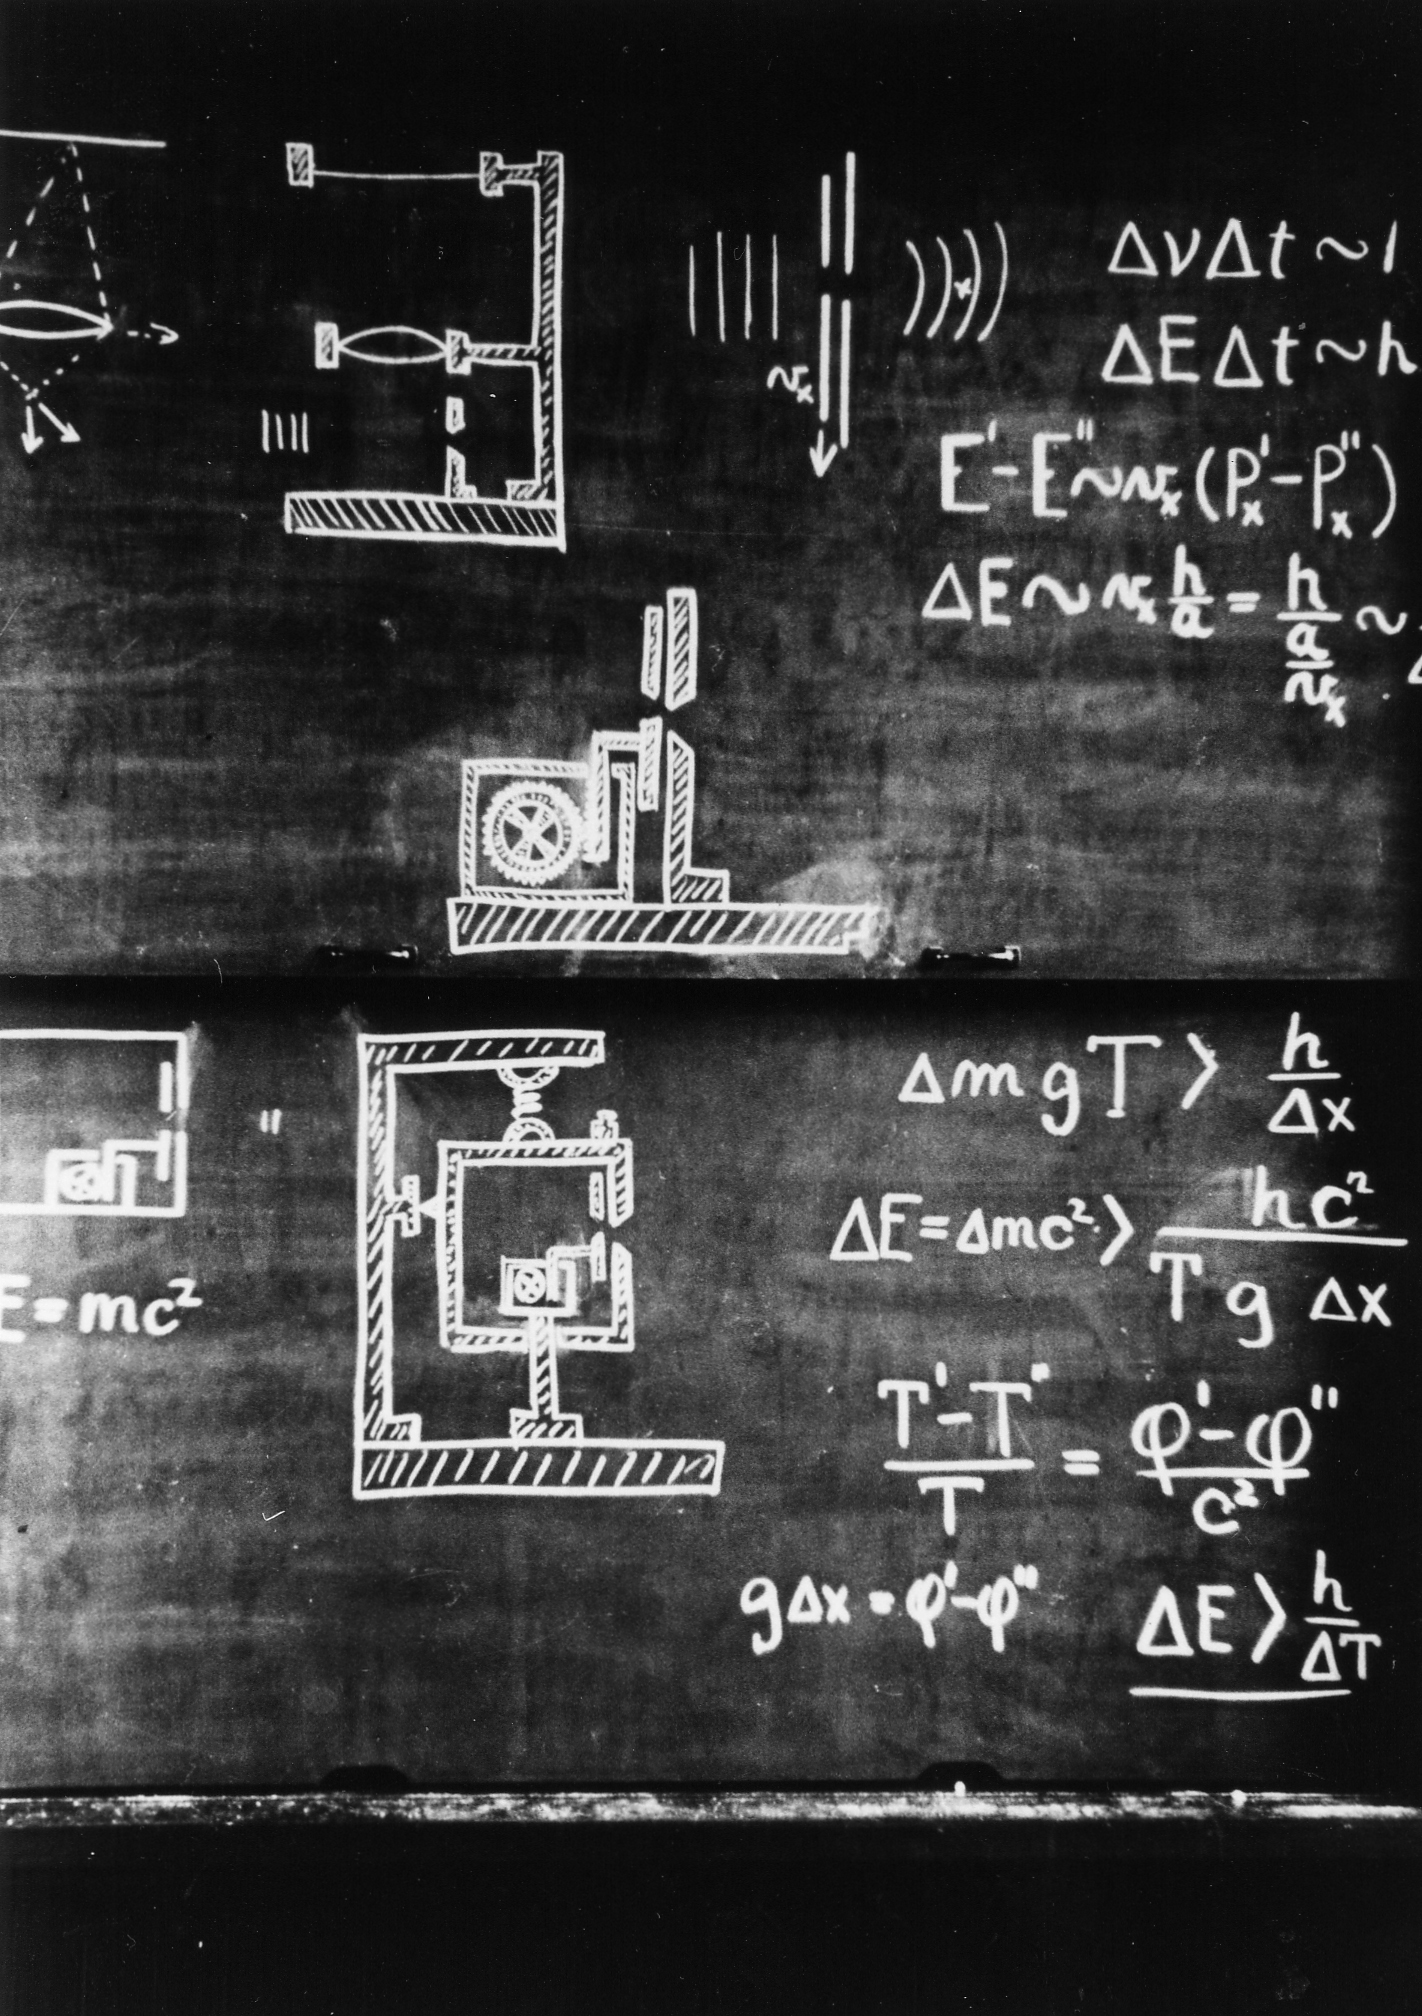 ΔνΔt ~ 1
ΔEΔt ~ h
E' - E'' ~ v_x (p'_x - p''_x)
v_x
ΔE ~ v_x h/a = h/(a/v_x) ~
Δm g T > h/Δx
"
ΔE = Δmc² > hc²/(T g Δx)
E = mc²
(T' - T'')/T = (φ' - φ'')/c²
gΔx = φ' - φ''
ΔE > h/ΔT